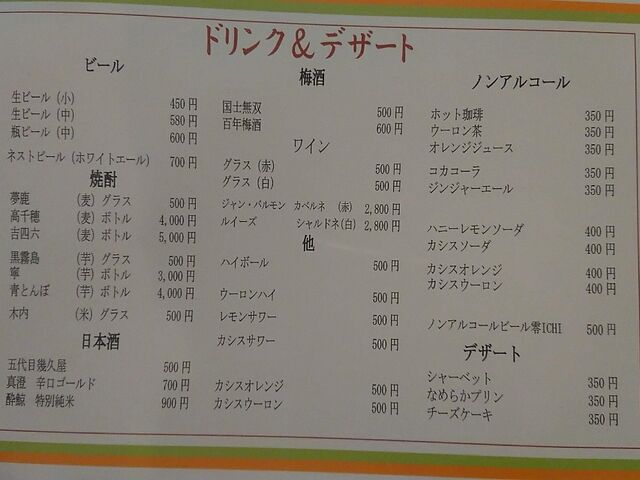 ドリンク＆デザート
ビール
生ビール（小） 450円
生ビール（中） 580円
瓶ビール（中） 600円
ネストビール（ホワイトエール） 700円
焼酎
夢鹿 （麦）グラス 500円
高千穂 （麦）ボトル 4,000円
吉四六 （麦）ボトル 5,000円
黒霧島 （芋）グラス 500円
寧 （芋）ボトル 3,000円
青とんぼ （芋）ボトル 4,000円
木内 （米）グラス 500円
日本酒
五代目幾久屋 500円
真澄 辛口ゴールド 700円
酔鯨 特別純米 900円
梅酒
国士無双 500円
百年梅酒 600円
ワイン
グラス（赤） 500円
グラス（白） 500円
ジャン・バルモン カベルネ （赤） 2,800円
ルイーズ シャルドネ(白) 2,800円
他
ハイボール 500円
ウーロンハイ 500円
レモンサワー 500円
カシスサワー 500円
カシスオレンジ 500円
カシスウーロン 500円
ノンアルコール
ホット珈琲 350円
ウーロン茶 350円
オレンジジュース 350円
コカコーラ 350円
ジンジャーエール 350円
ハニーレモンソーダ 400円
カシスソーダ 400円
カシスオレンジ 400円
カシスウーロン 400円
ノンアルコールビール零ICHI 500円
デザート
シャーベット 350円
なめらかプリン 350円
チーズケーキ 350円